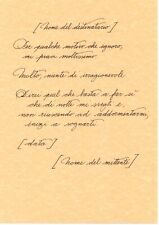 [nome del destinatario]
Per qualche motivo che ignoro,
mi piaci moltissimo.
Molto, niente di irragionevole.
Direi quel che basta a far sì
che di notte mi svegli e,
non riuscendo ad addormentarmi,
inizi a sognarti.
[data]
[nome del mittente]